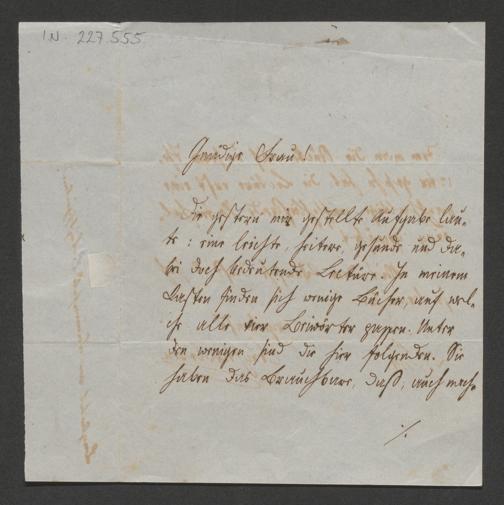 I.N. 227.555
Gnädige Frau!
Die gestern mir gestellte Aufgabe lau-
te: eine leichte, heitere, gesunde und da-
bei doch bedeutende Lectüre. In meinem
Kasten finden sich wenige Bücher, auf wel-
che alle vier Beiwörter passen. Unter
den wenigen sind die hier folgenden. Sie
haben das Brauchbare, daß, auch nach-
./.